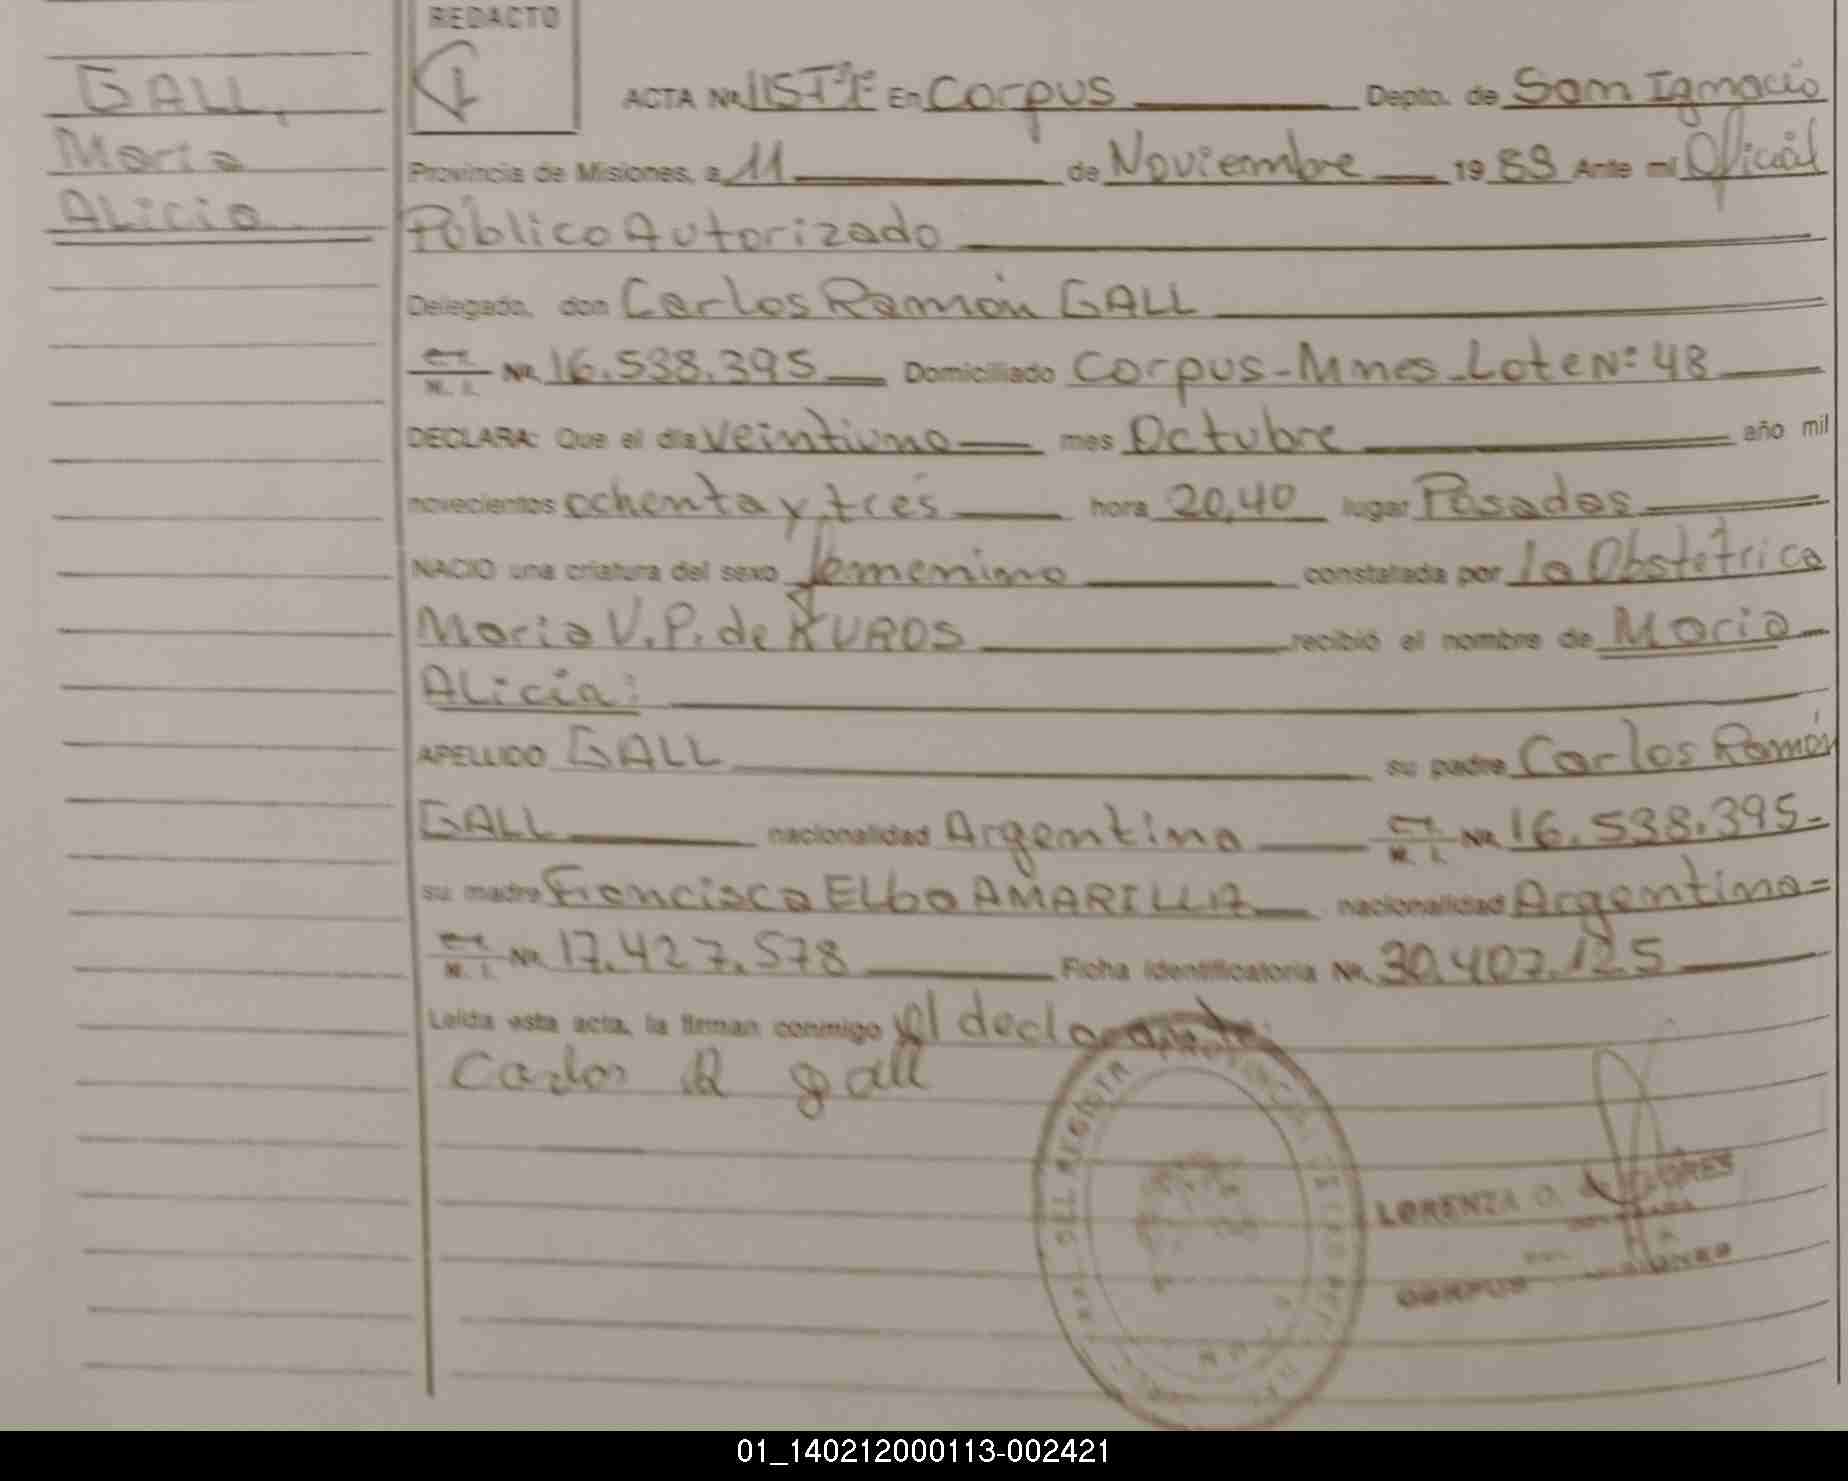 REDACTO
GALL,
Maria
Alicia
ACTA Nº 115 Tº 1º En Corpus Depto. de San Ignacio
Provincia de Misiones, a 11 de Noviembre 19 83 Ante mi Oficial
Público Autorizado
Delegado, don Carlos Ramón GALL
M. I. Nº 16.538.395 Domiciliado Corpus-Mnes-Lote Nº 48
DECLARA: Que el día veintiuno mes Octubre año mil
novecientos ochenta y tres hora 20,40 lugar Posadas
NACIO una criatura del sexo femenino constatada por la Obstétrica
Maria V. P. de KUROS recibió el nombre de Maria
Alicia:
APELLIDO GALL su padre Carlos Ramón
GALL nacionalidad Argentino M. I. Nº 16.538.395-
su madre Francisca Elba AMARILLA nacionalidad Argentina=
M. I. Nº 17.427.578 Ficha Identificatoria Nº 30.407.125
Leída esta acta, la firman conmigo el declarante:
Carlos R gall
DEL REGISTR
LORENZA O. FLORES
CORPUS
01_140212000113-002421